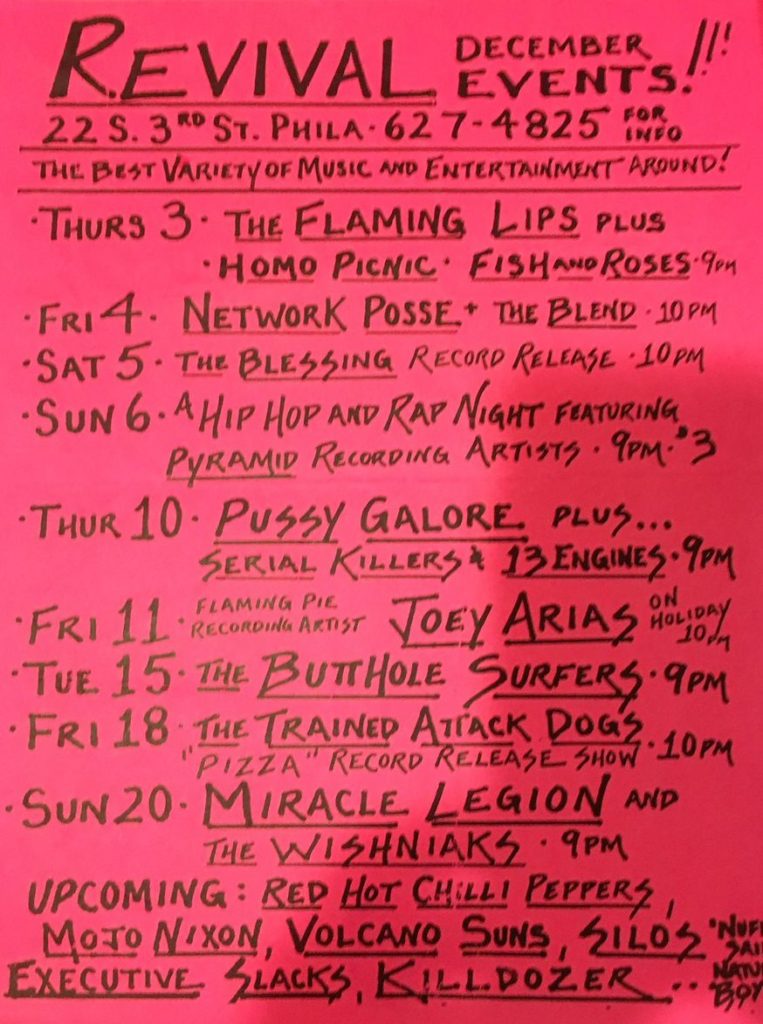 REVIVAL DECEMBER EVENTS!!!
22 S. 3RD ST. PHILA · 627-4825 FOR INFO
THE BEST VARIETY OF MUSIC AND ENTERTAINMENT AROUND!
· THURS 3 · THE FLAMING LIPS PLUS
· HOMO PICNIC · FISH AND ROSES · 9PM
· FRI 4 · NETWORK POSSE + THE BLEND · 10PM
· SAT 5 · THE BLESSING RECORD RELEASE · 10PM
· SUN 6 · A HIP HOP AND RAP NIGHT FEATURING
PYRAMID RECORDING ARTISTS · 9PM · $3
· THUR 10 · PUSSY GALORE PLUS...
SERIAL KILLERS & 13 ENGINES · 9PM
· FRI 11 · FLAMING PIE RECORDING ARTIST JOEY ARIAS ON HOLIDAY 10PM
· TUE 15 · THE BUTTHOLE SURFERS · 9PM
· FRI 18 · THE TRAINED ATTACK DOGS
"PIZZA" RECORD RELEASE SHOW · 10PM
· SUN 20 · MIRACLE LEGION AND
THE WISHNIAKS · 9PM
UPCOMING: RED HOT CHILLI PEPPERS,
MOJO NIXON, VOLCANO SUNS, SILOS
EXECUTIVE SLACKS, KILLDOZER .. BOY